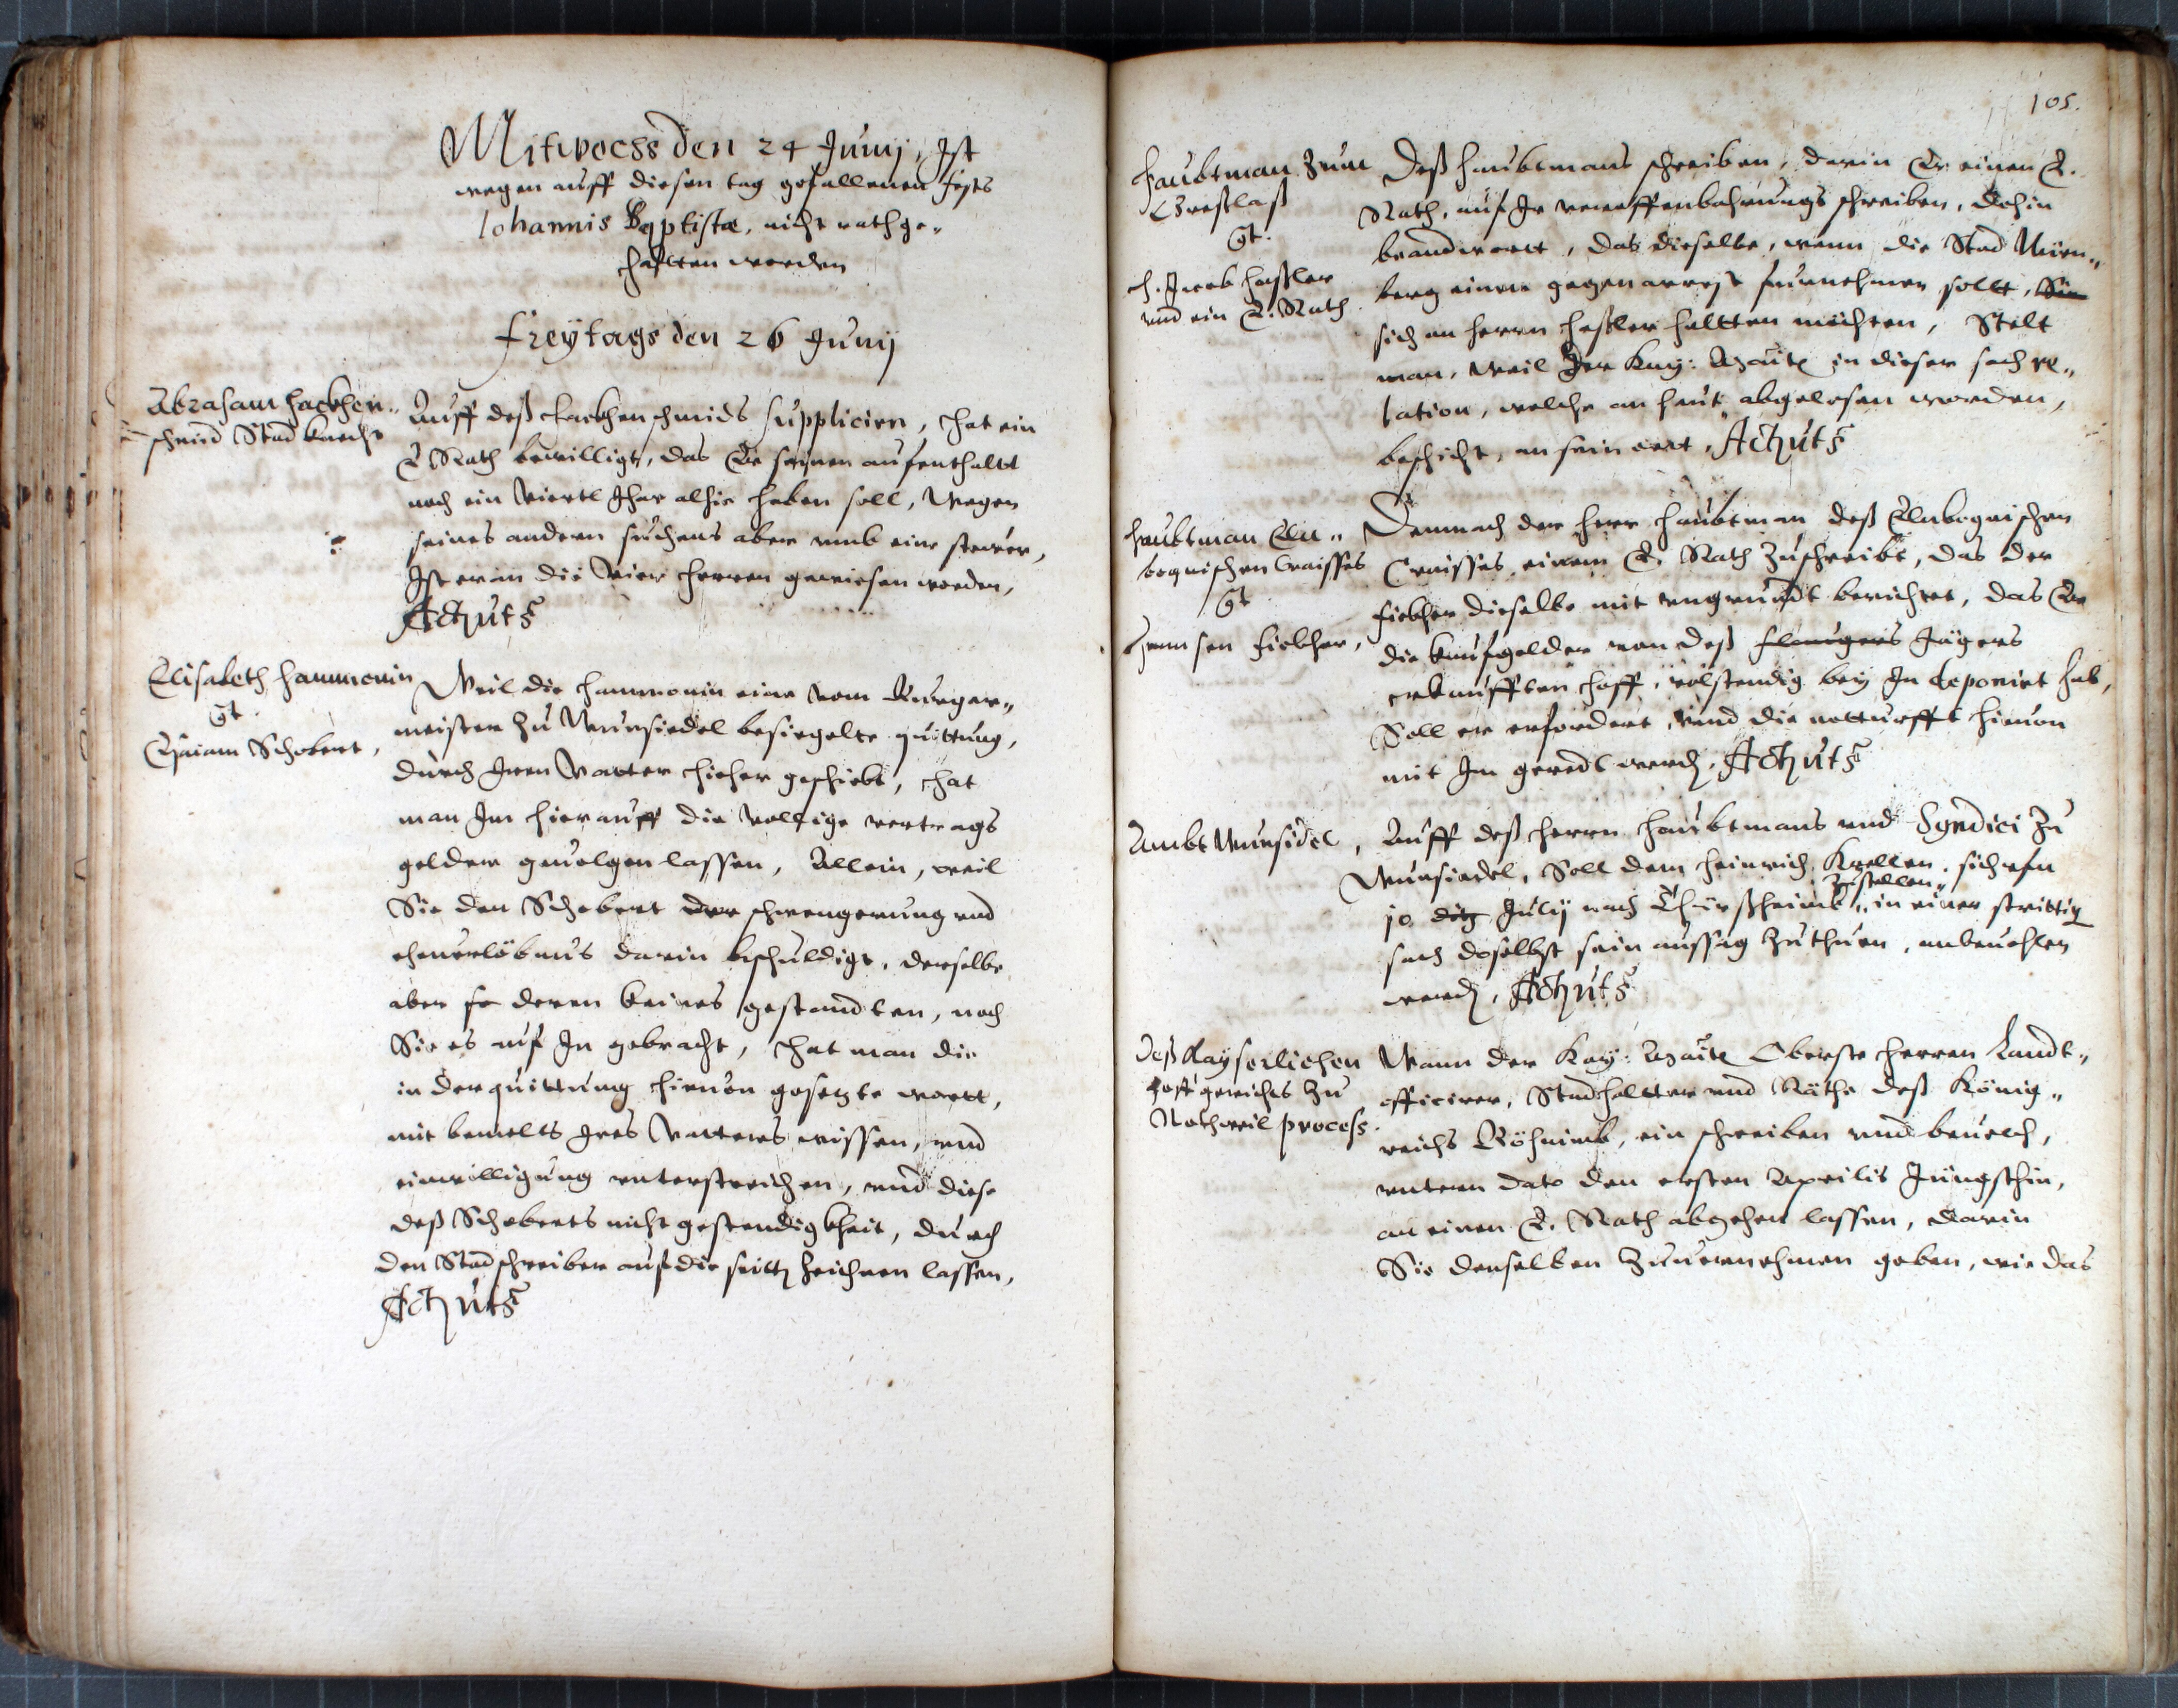 Mitwochs den 24 Junij, Ist
wegen auff diesen tag gefallenen fests
Iohannis Baptistæ, nicht rath ge„
haltten worden
Freÿtags den 26 Junij
Abraham Hackhen„
schmid Stadknecht
Auff deß Hackhenschmids supplicirn, hat ein
E. Rath bewilligt, das Er seinen aufenthaltt
noch ein Viertl Jhar alhie haben soll, Wegen
seines andern suchens aber umb eine steuer,
Ist er an die Vier herren gewiesen worden,
Actum ut s
Elisabeth Hammonin
Ct.
Schobert,
Weil die Hammonin eine vom Burger„
meister zu Wunsiedel besiegelte quittung,
durch Iren Vatter hieher geschickt, hat
man Im hierauff die vollige vertrags
gelder geuolgen lassen, Allein, weil
Sie den Schobert der schwengerung und
eheuerlöbnus darin beschuldigt, derselbe
aber deren keines gestandten, noch
Sie es auf In gebracht, hat man die
in der quittung hieuon gesetzte wortt,
mit bemelts Ires Vatters wissen, und
einwilligung unterstreichen, und diese
deß Schoberts nicht gestendigkheit, durch
den Stadschreiber auf die seitten zeichnen lassen,
Actum ut s
105.
Haubtman zum
Greßlaß
Ct.
H. Jacob Haßler
und ein E. Rath.
Deß Haubtmans schreiben, darin Er einen E.
Rath, auf Ir schreiben, dahin
beandtwortt, das dieselbe, wann die Stad Nürn„
berg einen gegenarrest fürnehmen sollt, Sie
sich an herrn Haßler haltten möchten, Stelt
man, weil Irer Kay: Maiτt in dieser sach re„
lation, welche an heut abgelesen worden,
beschicht, an sein ort, Actum ut s
Haubtman Eln„
bognischen Craisses
Ct
Fickher,
Demnach der Herr Haubtman deß Elnbognischen
Craisses, einem E. Rath zuschreibt, das der
Fickher dieselbe mit ungrundt berichtet, das Er
die kaufgelder von deß Jägers
erkaufften Hoff, völstendig bey Im deponirt hab,
Soll er erfordert, und die notturfft hieuon
mit Im geredt werden, Actum ut s
Ambt Wunsidel,
Auff deß Herrn Haubtmans und Syndici zu
Wunsiedel, Soll dem Heinrich Krellen, sich uf
10 ditz Julij nach Thierßheimb „zustellen„ in einer strittig
sach doselbst sein aussag zuthuen, anbeuohlen
werden, Actum ut s
Deß Kayserlichen
Hofgerichts zu
Rothweil process.
Wann der Kay: Maitt Oberste Herren Landt„
officirer, Stadhaltter und Räthe deß König„
reichs Böhaimb, ein schreiben und beuelch,
untern dato den ersten Aprilis Jüngsthin,
an einen E. Rath abgehen lassen, darin
Sie denselben zuuernehmen geben, wie das